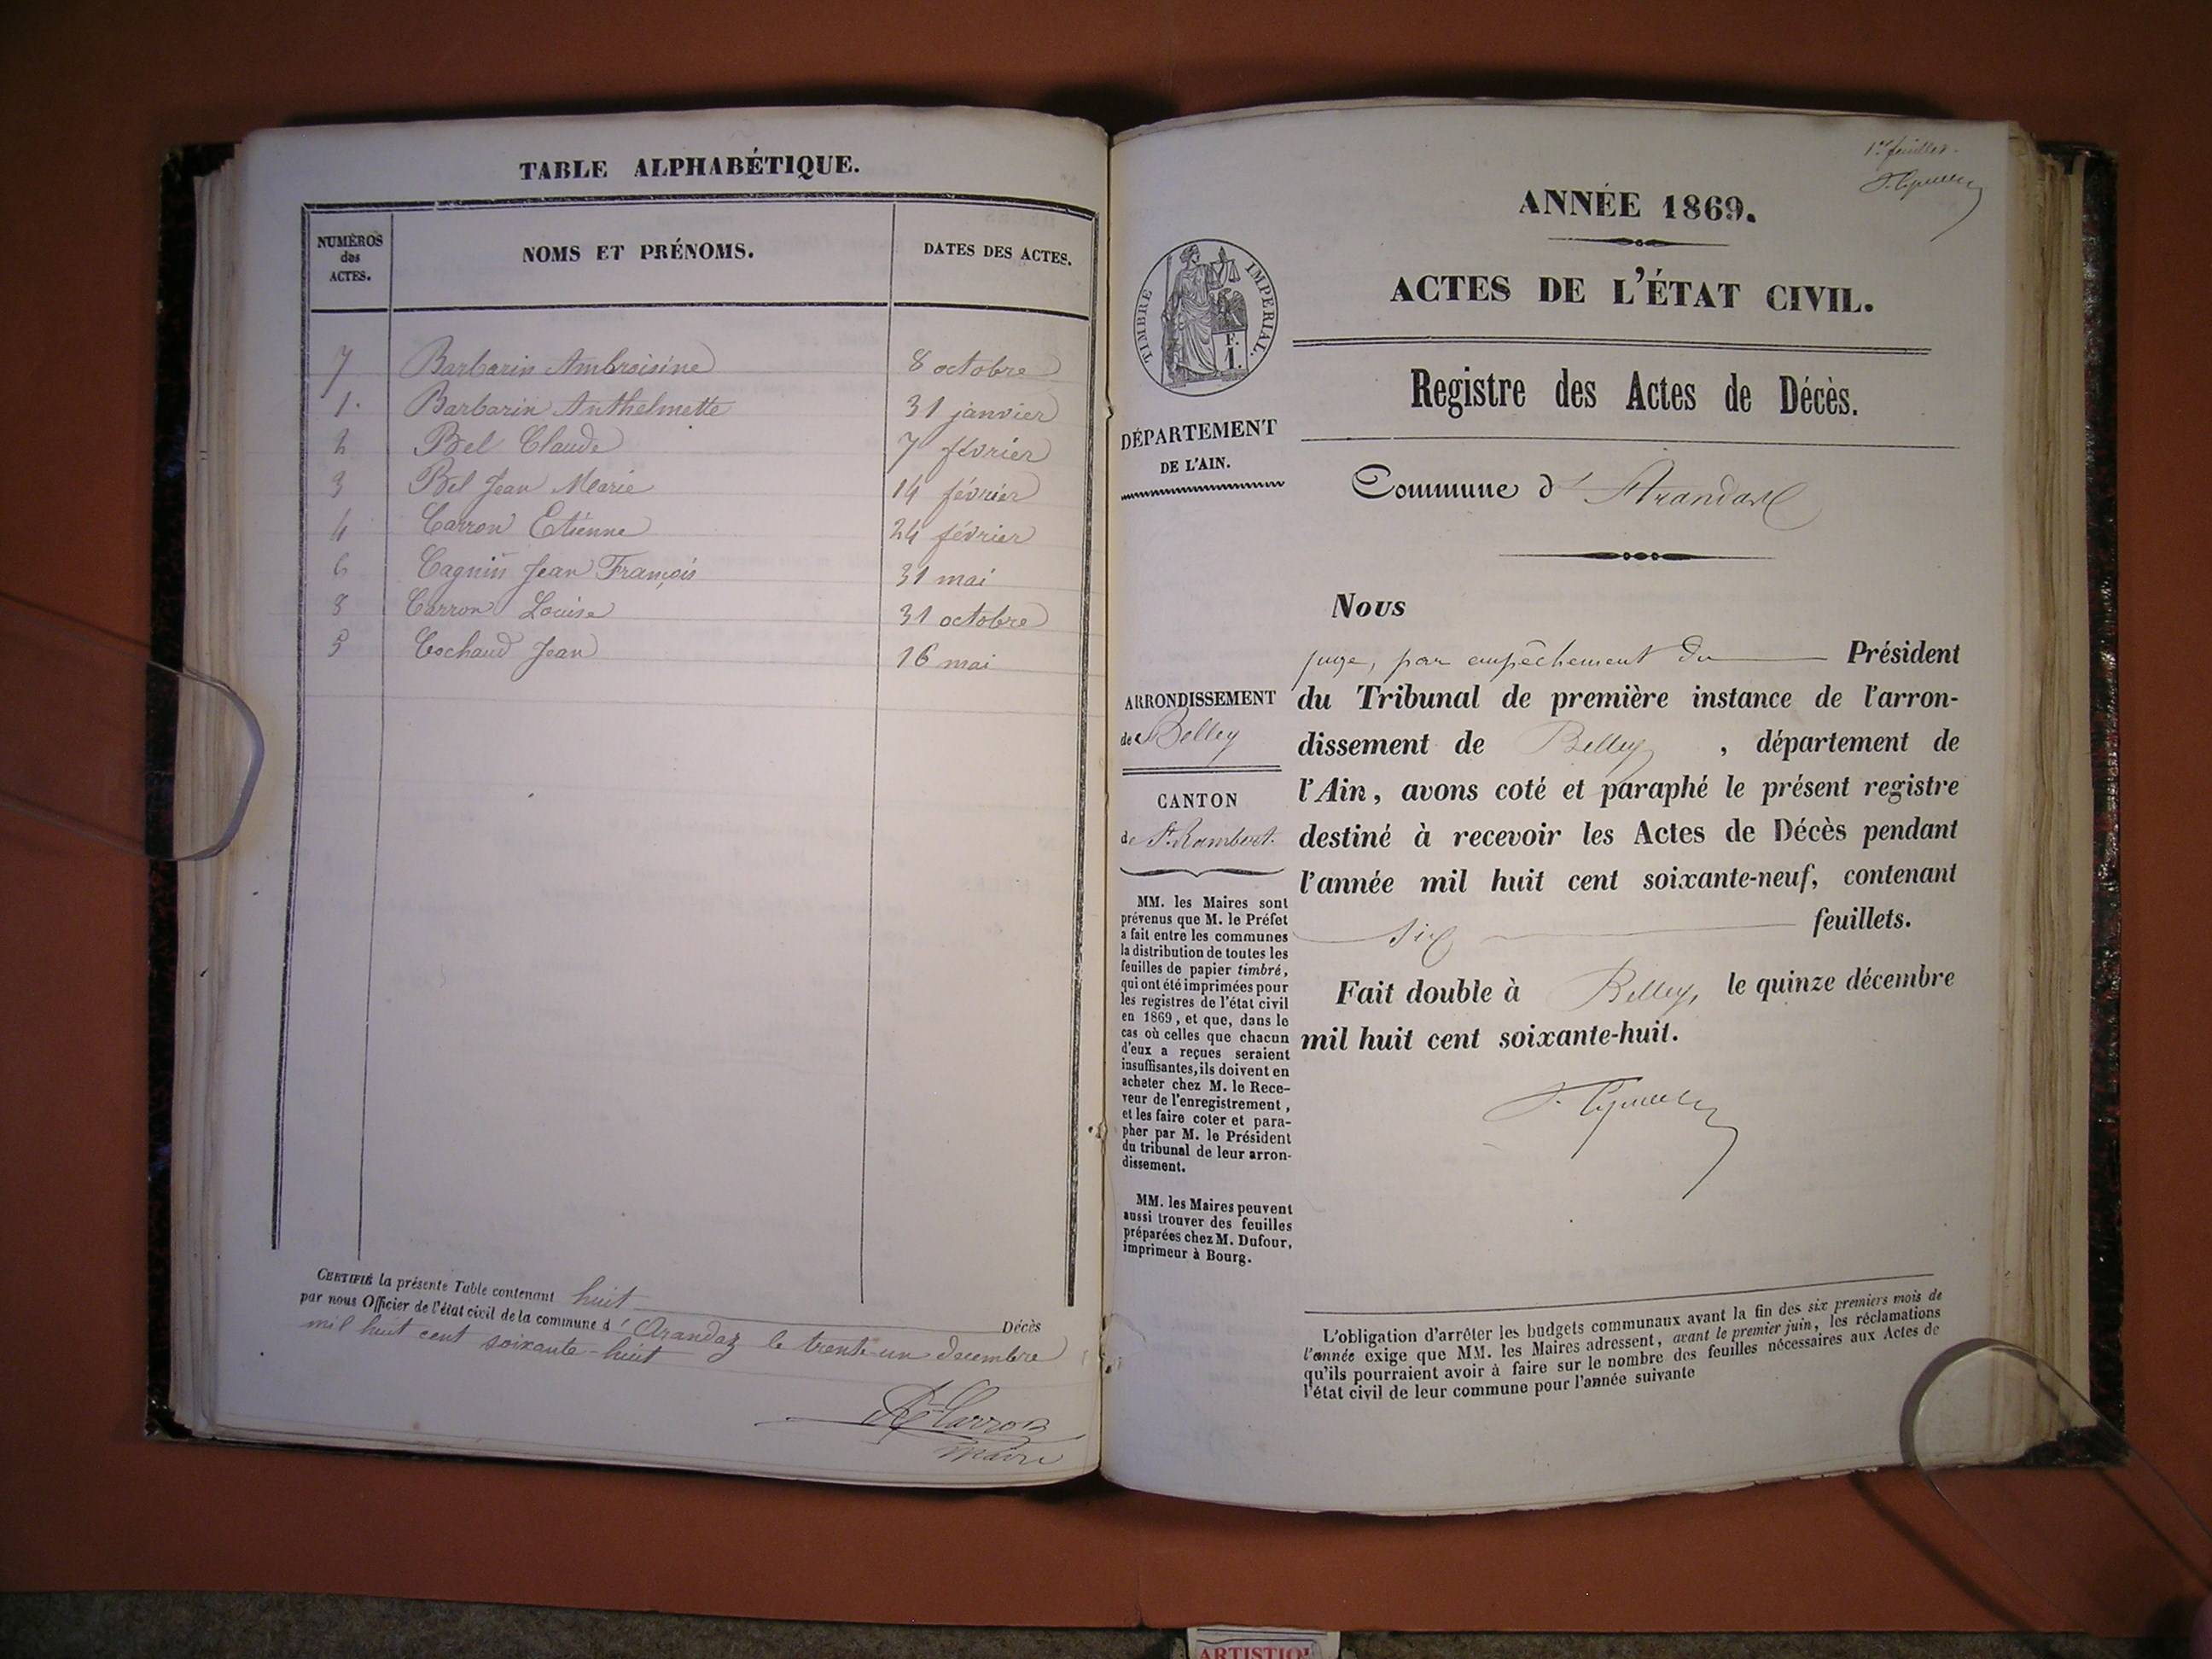 TABLE ALPHABÉTIQUE.
NUMÉROS des ACTES. NOMS ET PRÉNOMS. DATES DES ACTES.
7 Barbarin Ambroisine 8 octobre
1. Barbarin Anthelmette 31 janvier
2 Bel Claude 7 février
3 Bel Jean Marie 14 février
4 Carron Etienne 24 février
6 Cagnin Jean François 31 mai
8 Carron Louise 31 octobre
5 Cochaud Jean 16 mai
CERTIFIÉ la présente Table contenant huit Décès
par nous Officier de l'état civil de la commune d' Arandaz le trente-un decembre
mil huit cent soixante-huit
Carron
Maire
1er feuillet.
ANNÉE 1869.
TIMBRE IMPÉRIAL.
F.
1.
ACTES DE L'ÉTAT CIVIL.
Registre des Actes de Décès.
DÉPARTEMENT
DE L'AIN.
Commune d' Arandas
ARRONDISSEMENT
de Belley
CANTON
de St. Rambert.
MM. les Maires sont
prévenus que M. le Préfet
a fait entre les communes
la distribution de toutes les
feuilles de papier timbré,
qui ont été imprimées pour
les registres de l'état civil
en 1869, et que, dans le
cas où celles que chacun
d'eux a reçues seraient
insuffisantes, ils doivent en
acheter chez M. le Rece-
veur de l'enregistrement,
et les faire coter et para-
pher par M. le Président
du tribunal de leur arron-
dissement.
MM. les Maires peuvent
aussi trouver des feuilles
préparées chez M. Dufour,
imprimeur à Bourg.
Nous
juge, par empêchement du Président
du Tribunal de première instance de l'arron-
dissement de Belley, département de
l'Ain, avons coté et paraphé le présent registre
destiné à recevoir les Actes de Décès pendant
l'année mil huit cent soixante-neuf, contenant
six feuillets.
Fait double à Belley, le quinze décembre
mil huit cent soixante-huit.
L'obligation d'arrêter les budgets communaux avant la fin des six premiers mois de
l'année exige que MM. les Maires adressent, avant le premier juin, les réclamations
qu'ils pourraient avoir à faire sur le nombre des feuilles nécessaires aux Actes de
l'état civil de leur commune pour l'année suivante